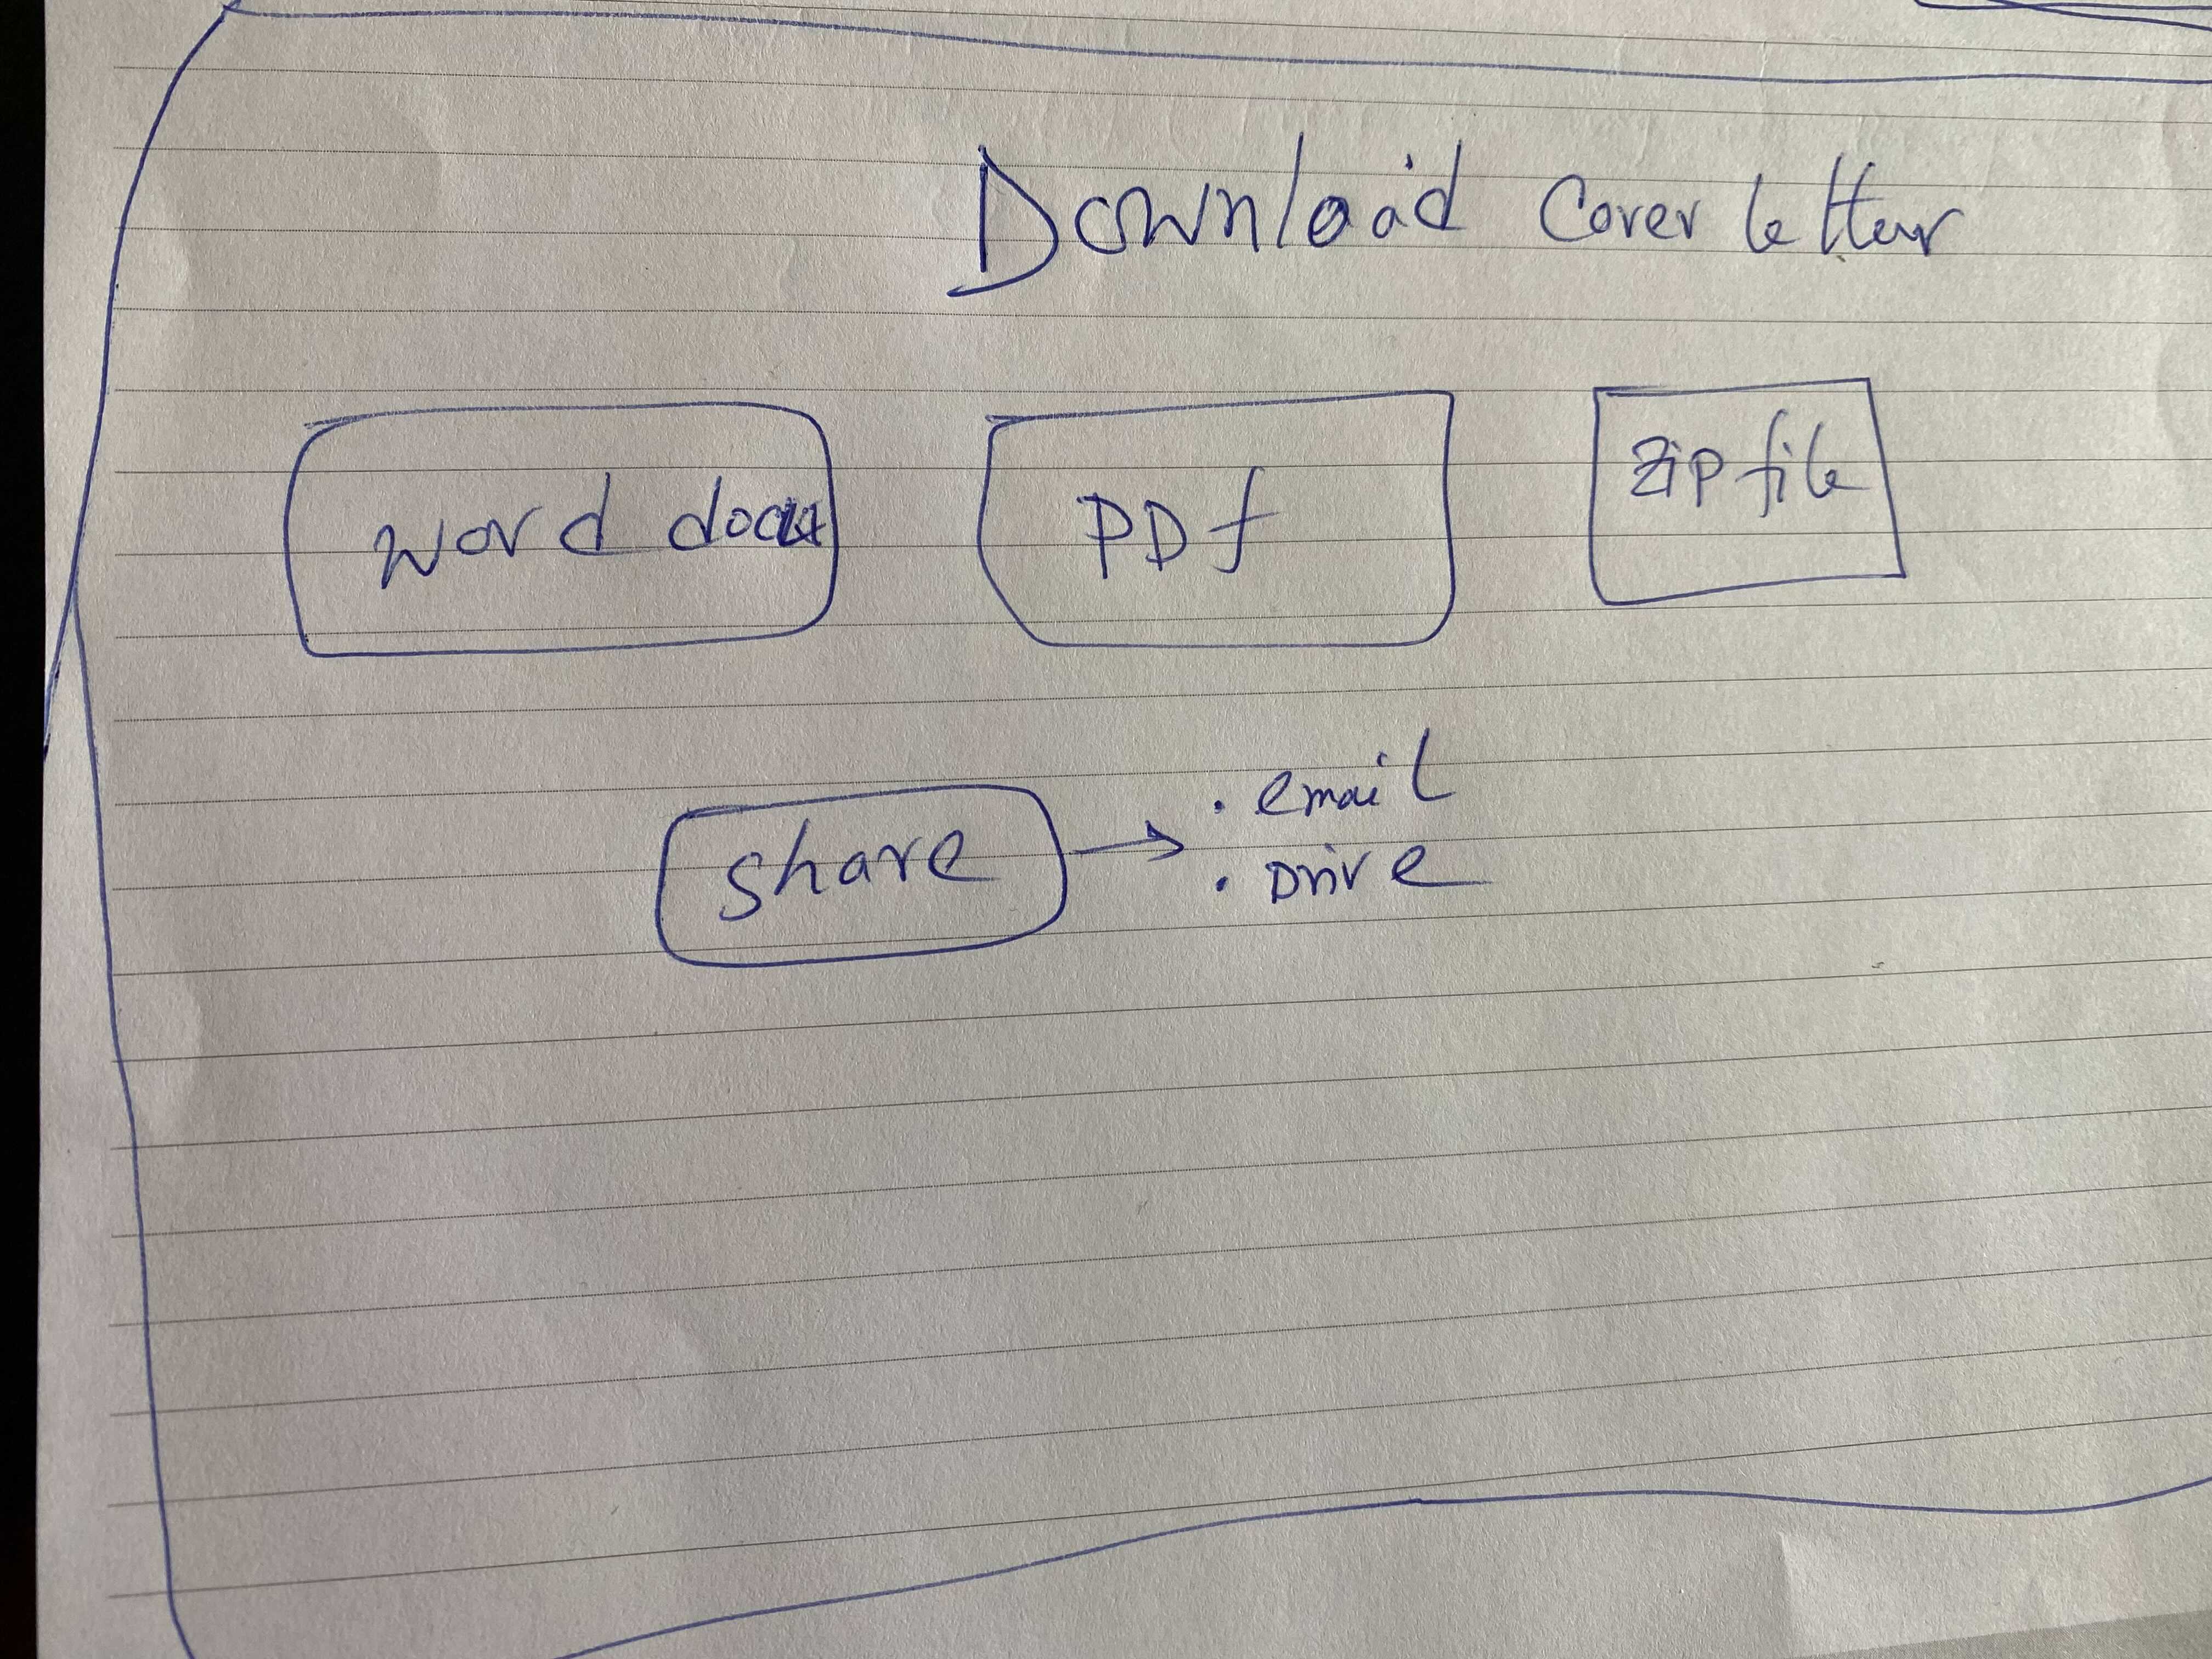 Download Cover letter
word
PDf
zip file
share → . email
. Drive